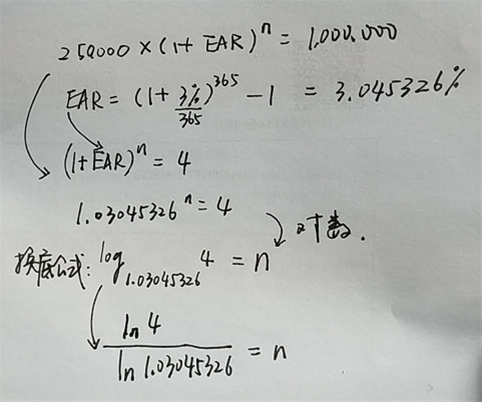 250000 × (1 + EAR)^n = 1,000,000
EAR = (1 + 3%/365)^365 - 1 = 3.045326%
(1+EAR)^n = 4
1.03045326^n = 4
对数.
换底公式: log_1.03045326 4 = n
ln 4 / ln 1.03045326 = n